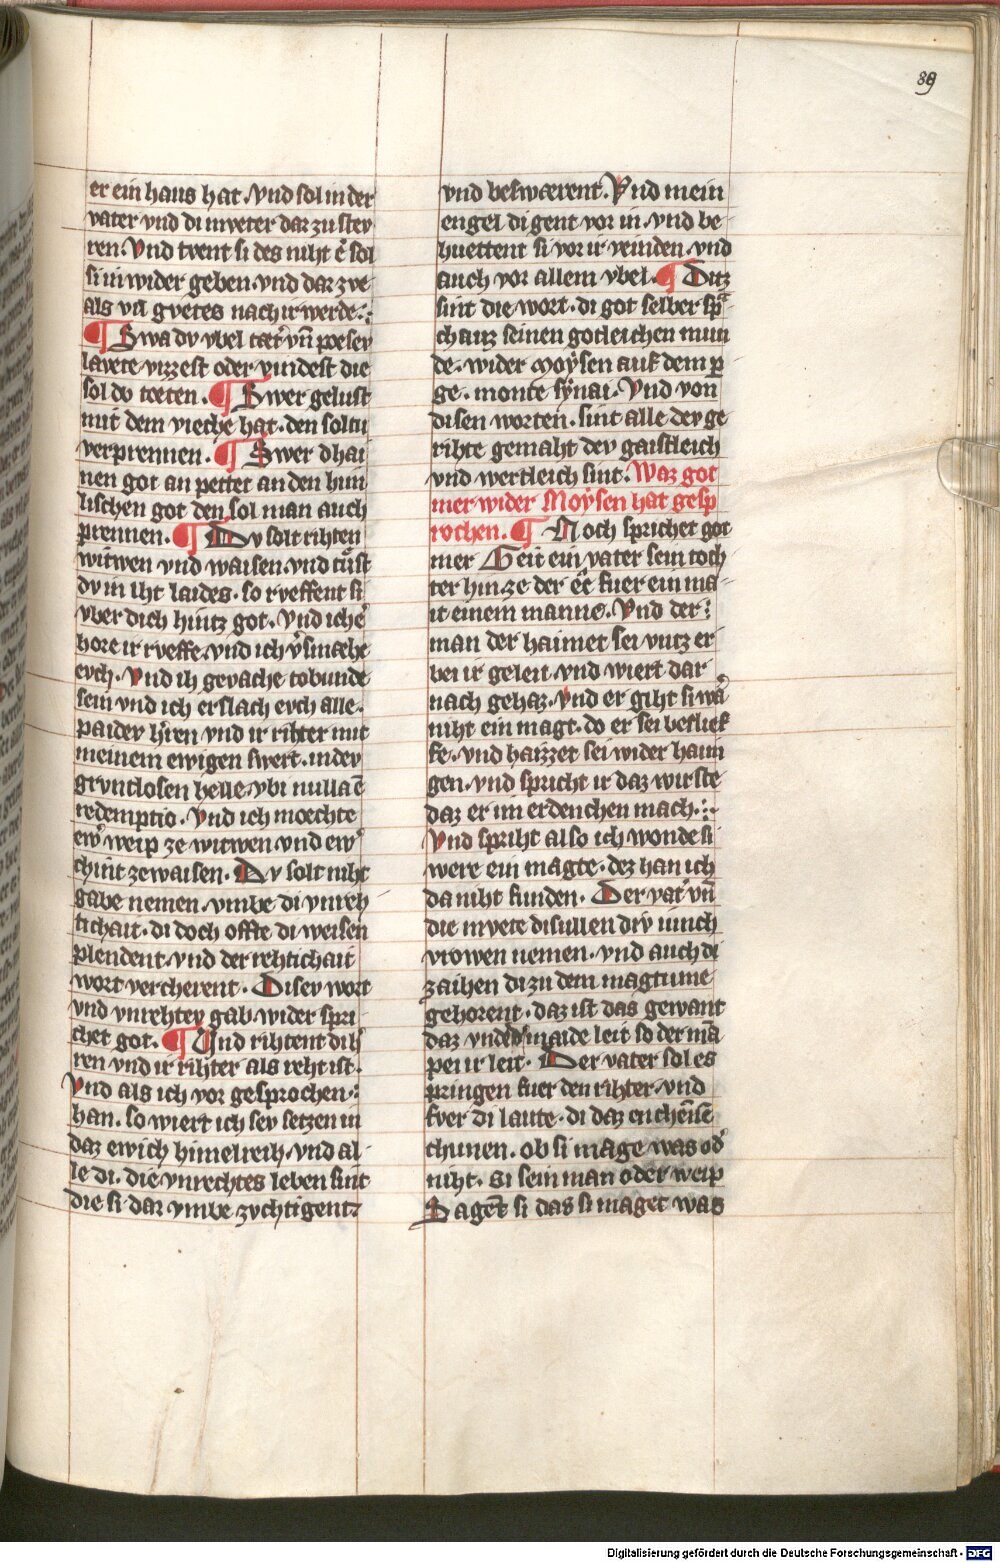 89
er ein haus hat. vnd sol in der
vater vnd di mveter dar zu stev
ren. Vnd twent si des niht e᷑ sol
si in wider geben. vnd dar zve
als vil gvetes nach ir werde.
¶ Swa dv vbel tæt᷑ vn̄ poesev
lavete vizzest oder vindest die
sol do toeten. ¶ Swer gelust
mit dem vieche hat. den soltu
verprennen. ¶ Swer dhai
nen got an pettet an den him
lischen got den sol man auch
prennen. ¶ Dv solt rihten
witwen vnd waisen. vnd tuͤst
dv in iht laides. so rveffent si
vber dich hintz got. Vnd ich e᷑
hore ir rveffe vnd ich v᷑smæhe
evch. Vnd ih gevache tobunde
sein vnd ich erslach evch alle.
paidev h᷑ren vnd ir rihter mit
meinem ewigen swert. in dev
grvntlosen helle. vbi nulla ē
redemptio. Vnd ich moechte
ew᷑ weip ze witwen vnd ew᷑
chint ze waisen. Dv solt niht
gabe nemen. vmbe di vnreh
tichait. di doch offte di weisen
plendent. vnd der rehtichait
wort vercherent. Disev wort
vnd vnrehtev gab. wider spri
chet got. ¶ Vnd rihtent di h᷑
ren vnd ir rihter als reht ist.
Vnd als ich vor gesprochen
han. so wiert ich sev setzen in
daz ewich himelreih. vnd al
le di. die vnrechtes leben sint
die si dar vmbe zvchtigent
vnd beswærent. Vnd mein
engel di gent vor in. vnd be
huettent si vor ir veinden. vnd
auch vor allem vbel. ¶ Ditz
sint die wort. di got selber sp͛
chanz seinen gotleichen mun
de. wider Moÿsen auf dem p̲
ge. monte sÿnai. Vnd von
disen worten. sint alle dev ge
rihte gemaht dev gaistleich
vnd wertleich sint. Waz got
mer wider Moÿsen hat gesp
rochen. ¶ Noch sprichet got
mer Geit ein vater sein toch
ter hin ze der e᷑e fuer ein ma
it einem manne. Vnd der
man der haimet sei vntz er
bei ir geleit. vnd wiert dar
nach gehaz. vnd er giht si wa᷑
niht ein magt. do er sei beslief
fe. vnd haizzet sei wider haim
gen. vnd spricht ir daz wirste
daz er im erdenchen mach.
Vnd spriht also ich wonde si
were ein magte. dez han ich
da niht funden. Der vat᷑ vn̄
die mvete di sullen div iunch
vrowen nemen. vnd auch di
zaihen di zu dem magtume
gehorent. daz ist das gewant
daz vnder d᷑ maide leit so der mā
pei ir leit. Der vater sol es
pringen fuer den rihter. vnd
fver di laute. di daz enchēise
chunen. ob si mage was od᷑
niht. Si sein man oder weip
Sagent si das si maget was
Digitalisierung gefördert durch die Deutsche Forschungsgemeinschaft - DFG